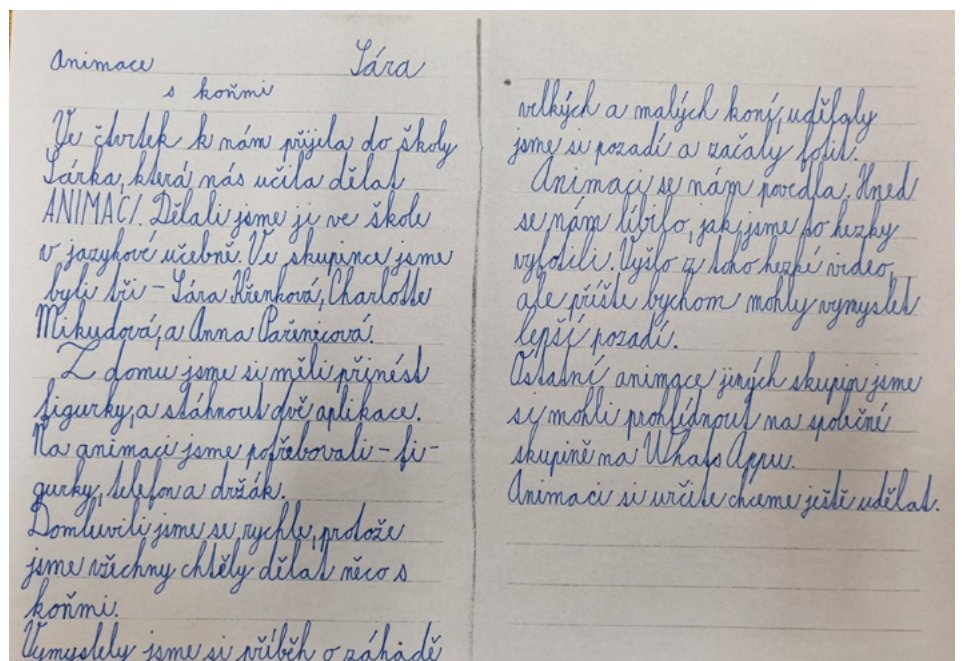 Animace Sára
s koňmi
Ve čtvrtek k nám přijela do školy
Šárka, která nás učila dělat
ANIMACI. Dělali jsme ji ve škole
v jazykové učebně. Ve skupince jsme
byli tři – Sára Křenková, Charlotte
Mikudová, a Anna Pařenicová.
Z domu jsme si měli přinést
figurky, a stáhnout dvě aplikace.
Na animaci jsme potřebovali – fi-
gurky, telefon a držák.
Domluvili jsme se rychle, protože
jsme všechny chtěly dělat něco s
koňmi.
Vymyslely jsme si příběh o záhadě
velkých a malých koní, udělaly
jsme si pozadí a začaly fotit.
Animaci se nám povedla. Hned
se nám líbilo, jak jsme to hezky
vyfotili. Vyšlo z toho hezké video,
ale příště bychom mohly vymyslet
lepší pozadí.
Ostatní, animace jiných skupin jsme
si mohli prohlédnout na společné
skupině na WhatsAppu.
Animaci si určitě chceme ještě udělat.